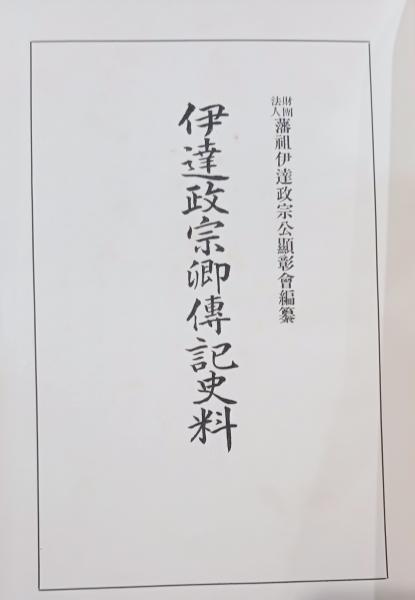 財團法人藩祖伊達政宗公顯彰會編纂
伊達政宗卿傳記史料